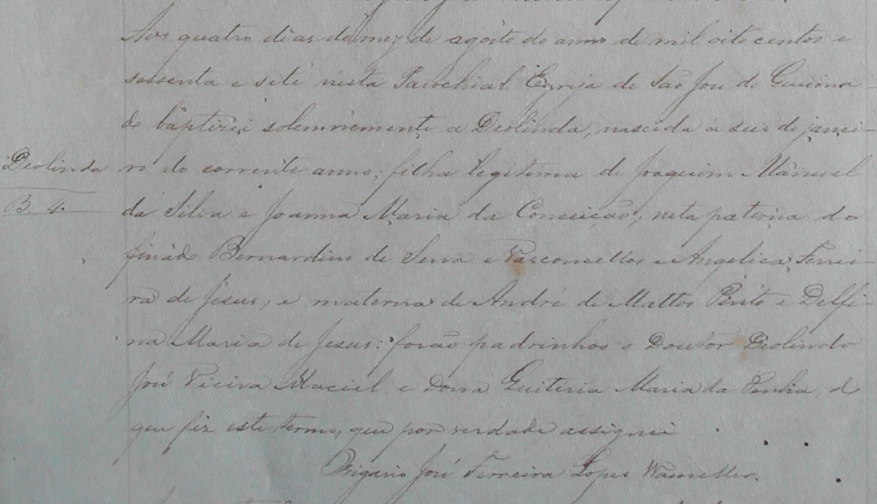 Aos quatro dias do mez de agosto do anno de mil oito centos e
sessenta e sete nesta Parochial Egreja de São José do
de baptizei solemnemente a Deolinda, nascida a seis de janei-
Deolinda
ro do corrente anno; filha legitima de Joaquim Manoel
B. 4.
da Silva e Joanna Maria da Conceição; neta paterna do
finado Bernardino de Senna e Vasconcellos e Angelica Ferrei-
ra de Jesus; e materna de André de Mattos Pinto e Delfi-
na Maria de Jesus: forão padrinhos o Doutor Deolindo
José Vieira Maciel e Dona Quiteria Maria da Penha, do
que fiz este termo, que por verdade assignei
Vigario José Ferreira Lopes